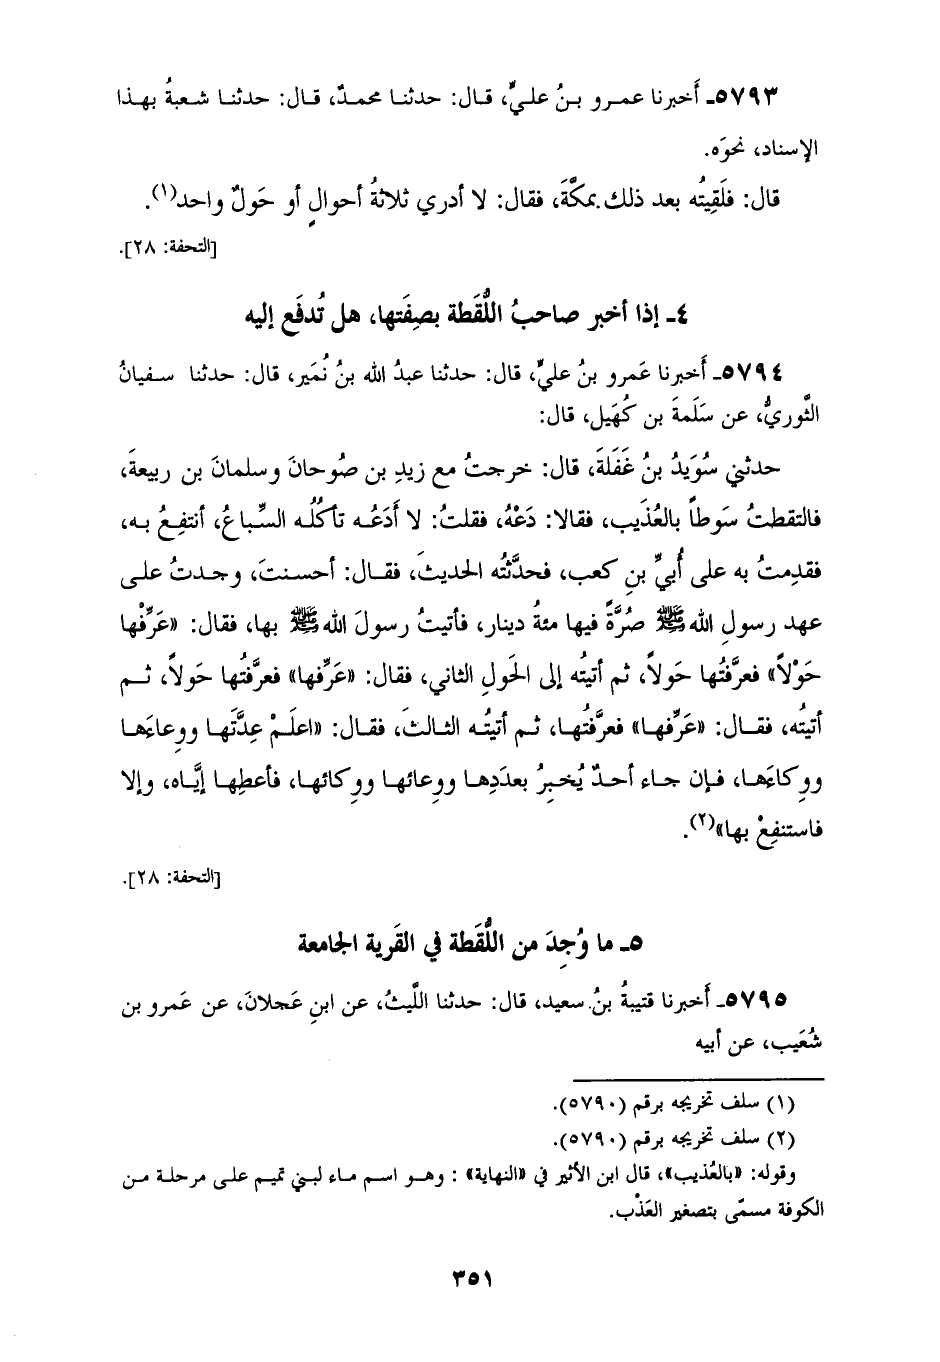 ٥٧٩٣ـ أَخبرنا عمـرو بـنُ علـيٍّ، قـال: حدثنـا محمـدٌ، قـال: حدثنـا شـعبةُ بهـذا
الإسناد، نحوَه.
قال: فلَقِيتُه بعد ذلك بمكَّةَ، فقال: لا أدري ثلاثةُ أحوالٍ أو حَولٌ واحد(١).
[التحفة: ٢٨].
٤ـ إذا أخبر صاحبُ اللُّقَطة بصِفَتها، هل تُدفَع إليه
٥٧٩٤ـ أَخبرنا عَمرو بنُ عليٍّ، قال: حدثنا عبدُ الله بنُ نُمَير، قال: حدثنا سـفيانُ
الثَّوريُّ، عن سَلَمةَ بن كُهَيل، قال:
حدثني سُوَيدُ بنُ غَفَلةَ، قال: خرجتُ مع زيدِ بن صُوحانَ وسلمانَ بن ربيعةَ،
فالتقطتُ سَوطاً بالعُذَيب، فقالا: دَعْهُ، فقلتُ: لا أَدَعُـه تأكُلُـه السِّباعُ، أنتفِـعُ بـه،
فقدِمـتُ به على أُبيِّ بنِ كعب، فحدَّثتُه الحديثَ، فقـال: أحسنـتَ، وجـدتُ علـى
عهد رسولِ الله ﷺ صُرَّةً فيها مئةُ دينار، فأتيتُ رسولَ الله ﷺ بها، فقال: «عَرِّفْها
حَوْلاً» فعرَّفتُها حَولاً، ثم أتيتُه إلى الحَولِ الثاني، فقال: «عَرِّفها» فعرَّفتُها حَولاً، ثـم
أتيتُه، فقـال: «عَرِّفهـا» فعرَّفتُهـا، ثـم أتيتُـه الثـالثَ، فقـال: «اعلَـمْ عِدَّتَهـا ووِعاءَهـا
ووِكاءَهـا، فـإن جـاء أحـدٌ يُخـبِرُ بعدَدِهـا ووِعائهـا ووِكائهـا، فأعطِهـا إيَّاه، وإلا
فاستنفِعْ بها»(٢).
[التحفة: ٢٨].
٥ـ ما وُجِدَ من اللُّقَطة في القَرية الجامعة
٥٧٩٥ـ أَخبرنا قتيبةُ بنُ سعيد، قال: حدثنا اللَّيثُ، عن ابنِ عَجلانَ، عن عَمرو بن
شُعَيب، عن أبيه
(١) سلف تخريجه برقم (٥٧٩٠).
(٢) سلف تخريجه برقم (٥٧٩٠).
وقوله: «بالعُذيب»، قال ابن الأثير في «النهاية» : وهـو اسـم مـاء لبـني تميـم علـى مرحلـة مـن
الكوفة مسمّى بتصغير العَذْب.
٣٥١